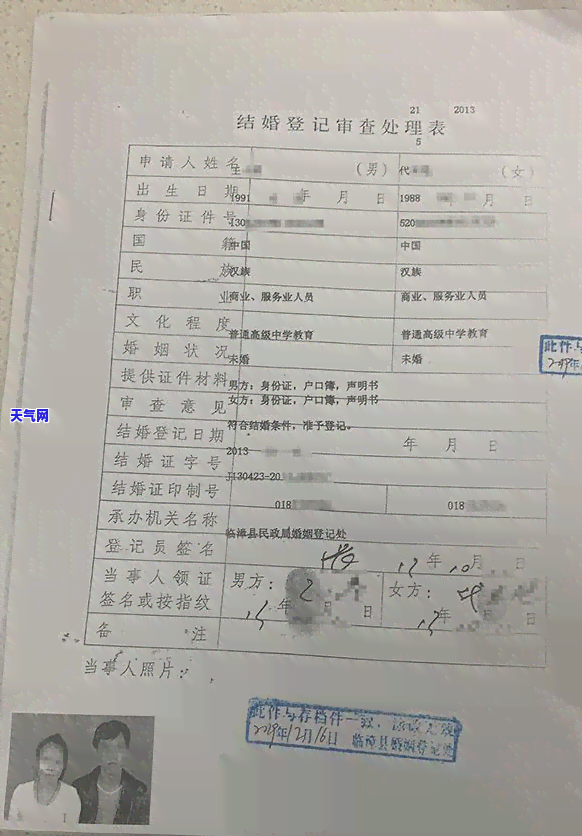 21 2013
结婚登记审查处理表
5
申请人姓名 （男） 代 （女）
出生日期 1991 年 月 日 1988 年 月 日
身份证件号 130 520
国 籍 中国 中国
民 族 汉族 汉族
职 业 商业、服务业人员 商业、服务业人员
文化程度 普通高级中学教育 普通高级中学教育
婚姻状况 未婚 未婚
此件与
提供证件材料 男方：身份证，户口簿，声明书
女方：身份证，户口簿，声明书
审查意见 符合结婚条件，准予登记。
天气网
结婚登记日期 2013 年 月 日
结婚证字号 J130423-20
结婚证印制号 018 018
承办机关名称 临漳县民政局婚姻登记处
登记员签名 年 10月 日
当事人领证 男方： 女方：
签名或按指纹 年 日 年 日
备 注
当事人照片：
此件与存档件一致，涂改无效
2019年12月16日 临漳县婚姻登记处